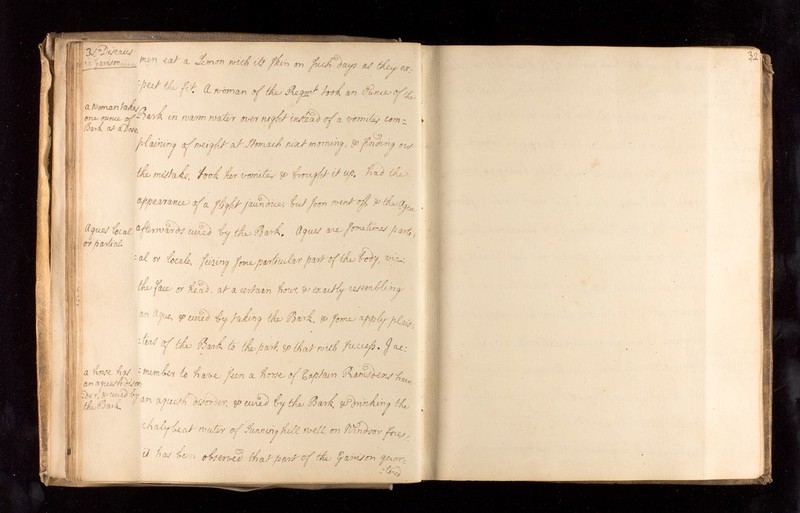 31 Diseases
in Garison
men eat a Lemon with its skin on such days as they ex:
:pect the fit. A woman of the Regmt took an Ounce of the
a woman takes
one ounce of
Bark at a Dose
Bark in warm water over night instead of a vomite, com=
plaining of weight at Stomach next morning, & finding out
the mistake, took her vomite, & brought it up. had the
appearance of a slight jaundice, but soon went off, & the Ague
Agues local
or partial.
afterwards cured by the Bark. Agues are sometimes parti,
:al or locale, seizing some particular part of the body, viz:
the face or head. at a certain hour, & exactly resembling
an Ague, & cured by taking the Bark, & some apply plais:
:ters of the Bark to the part, & that with success. I re:
a horse has
an aguish disor
:der, & cured by
the Bark
:member to have seen a horse of Captain Ramsdens have
an aguish disorder, & cured by the Bark & drinking the
chalybeat water of Sunning hill well on Windsor fores:
it has been observed that part of the Garison quar:
:tered
32